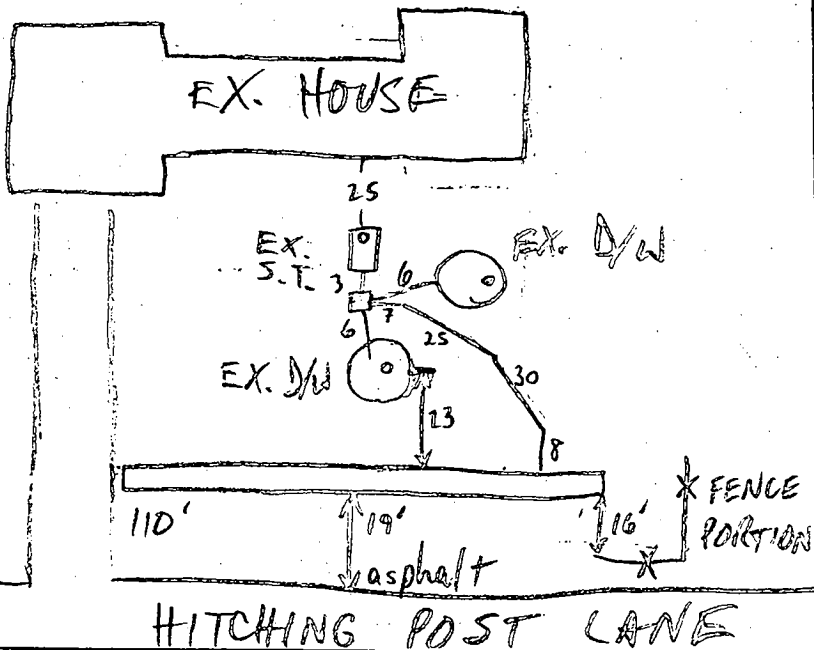 EX. HOUSE
25
EX.
S.T.
EX. D/W
3
6
7
6
25
EX. D/W
30
23
8
110'
19'
16'
FENCE
PORTION
asphalt
HITCHING POST LANE